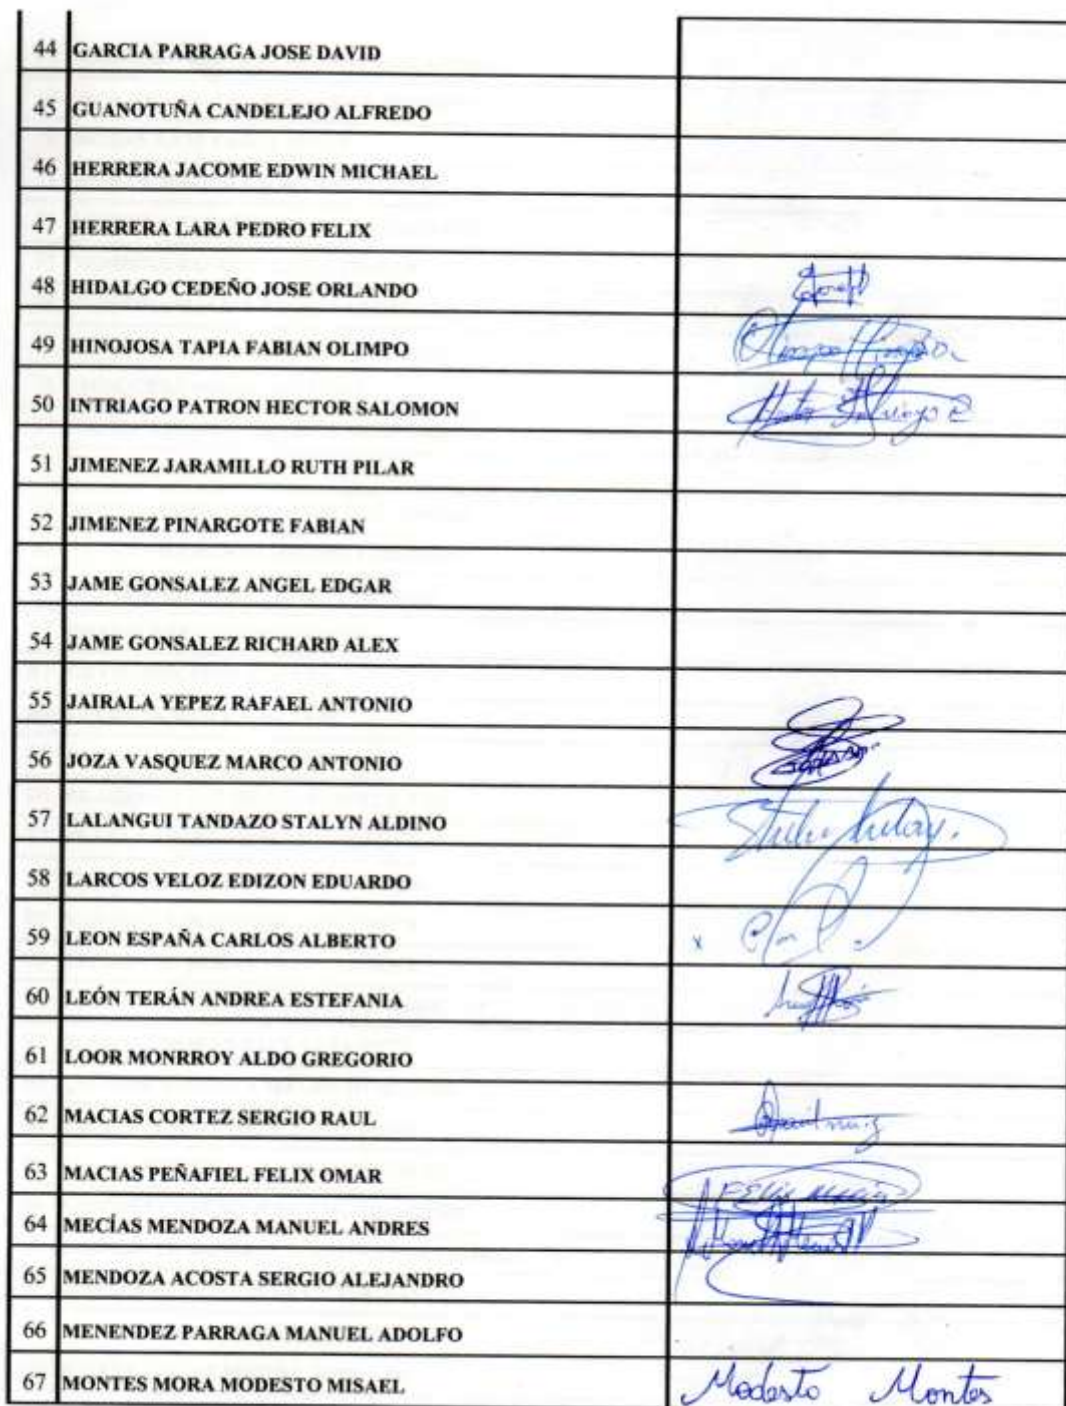 44 GARCIA PARRAGA JOSE DAVID
45 GUANOTUÑA CANDELEJO ALFREDO
46 HERRERA JACOME EDWIN MICHAEL
47 HERRERA LARA PEDRO FELIX
48 HIDALGO CEDEÑO JOSE ORLANDO
49 HINOJOSA TAPIA FABIAN OLIMPO
50 INTRIAGO PATRON HECTOR SALOMON
51 JIMENEZ JARAMILLO RUTH PILAR
52 JIMENEZ PINARGOTE FABIAN
53 JAME GONSALEZ ANGEL EDGAR
54 JAME GONSALEZ RICHARD ALEX
55 JAIRALA YEPEZ RAFAEL ANTONIO
56 JOZA VASQUEZ MARCO ANTONIO
57 LALANGUI TANDAZO STALYN ALDINO
58 LARCOS VELOZ EDIZON EDUARDO
59 LEON ESPAÑA CARLOS ALBERTO x
60 LEÓN TERÁN ANDREA ESTEFANIA
61 LOOR MONRROY ALDO GREGORIO
62 MACIAS CORTEZ SERGIO RAUL
63 MACIAS PEÑAFIEL FELIX OMAR FELIX MACIAS
64 MECÍAS MENDOZA MANUEL ANDRES
65 MENDOZA ACOSTA SERGIO ALEJANDRO
66 MENENDEZ PARRAGA MANUEL ADOLFO
67 MONTES MORA MODESTO MISAEL Modesto Montes